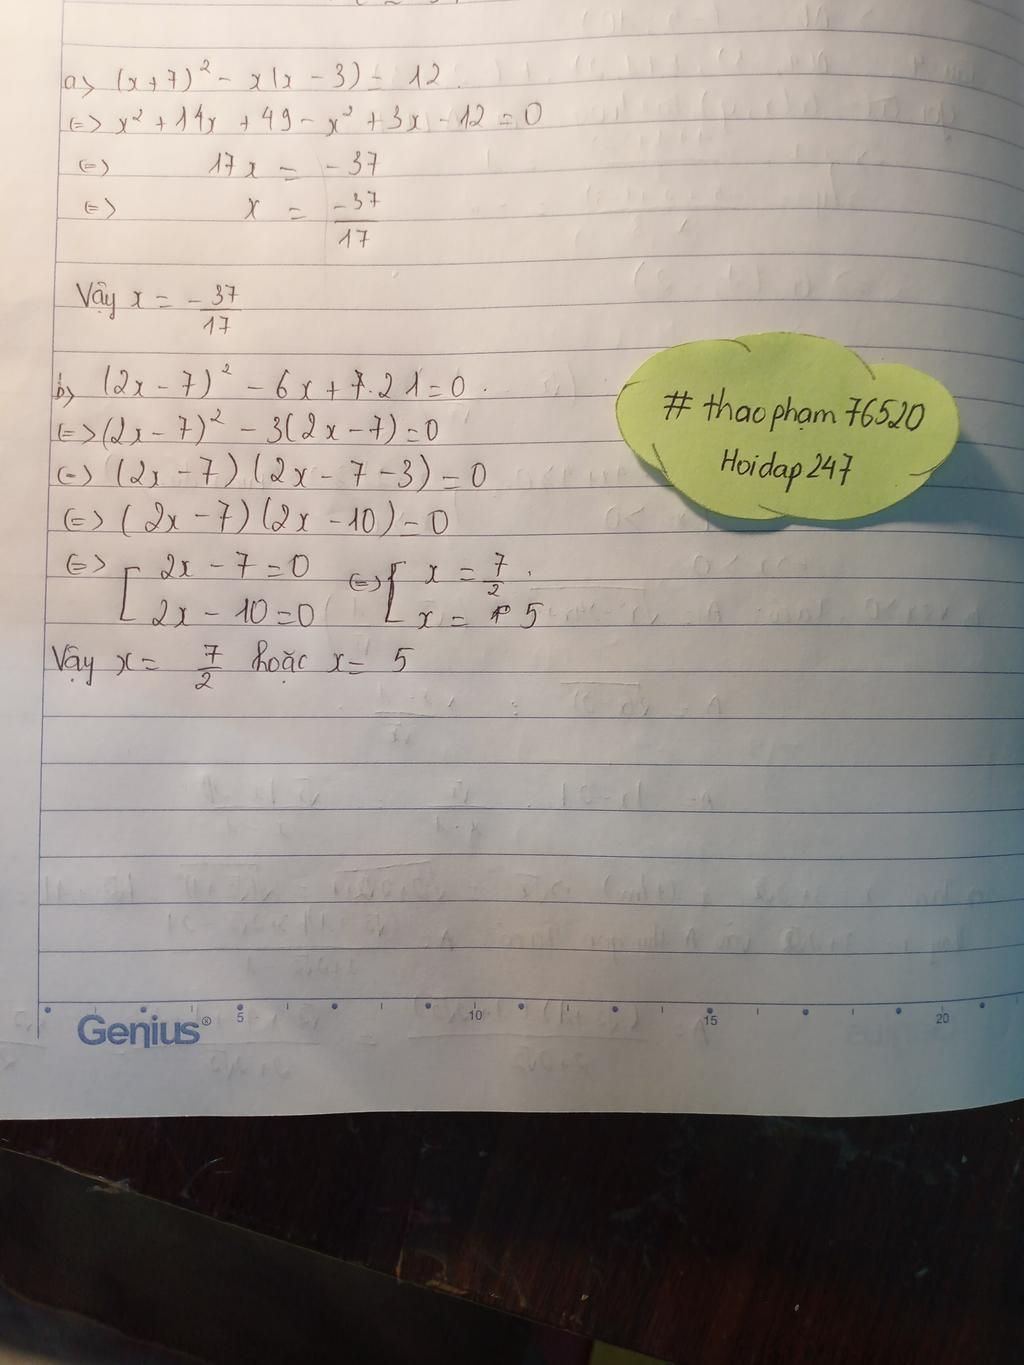 a) (x+7)² - x(x - 3) = 12
<=> x² + 14x + 49 - x² + 3x - 12 = 0
<=> 17x = -37
<=> x = -37/17
Vậy x = -37/17
b) (2x - 7)² - 6x + 7.21 = 0.
<=> (2x - 7)² - 3(2x - 7) = 0
<=> (2x - 7)(2x - 7 - 3) = 0
<=> (2x - 7)(2x - 10) = 0
<=> [ 2x - 7 = 0 <=> [ x = 7/2.
2x - 10 = 0 x = 5
Vậy x = 7/2 hoặc x = 5
# thaophạm76520
Hoidap247
Genius®
5 10 15 20